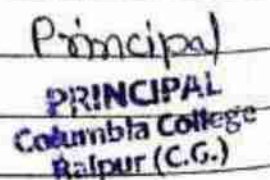 Principal
PRINCIPAL
Columbia College
Raipur (C.G.)